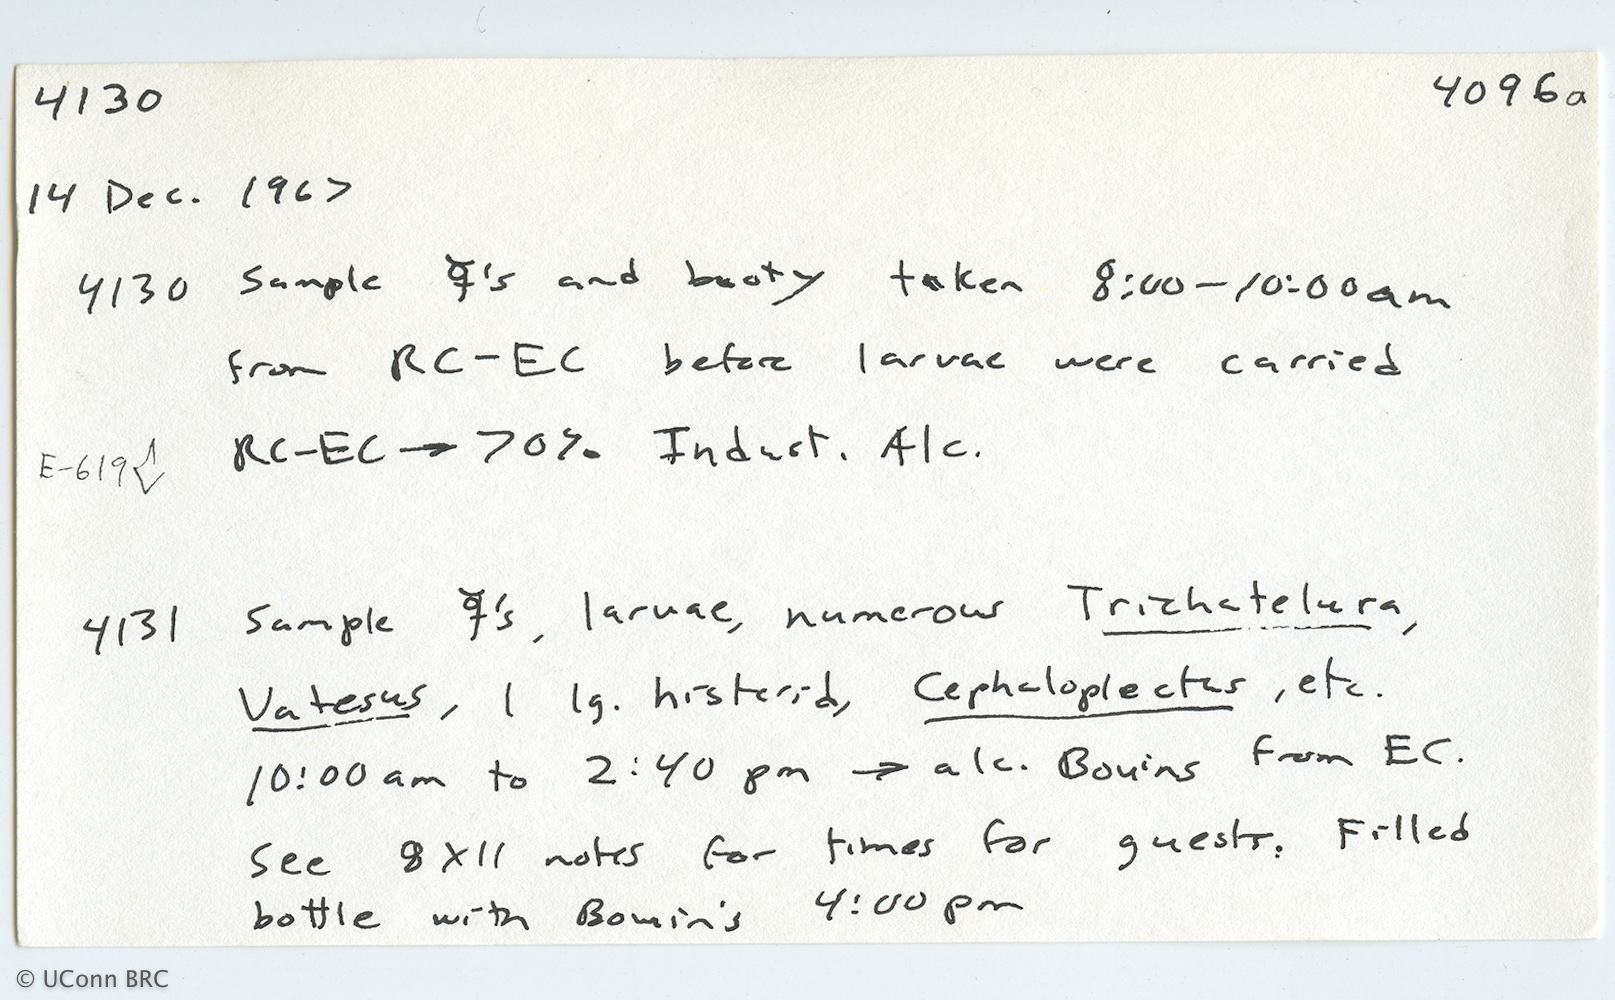 4130
4096a
14 Dec. 1967
4130 Sample ☿'s and booty taken 8:00-10:00am
from RC-EC before larvae were carried
E-619 RC-EC → 70% Indust. Alc.
4131 Sample ☿'s, larvae, numerous Trichatelura,
Vatesus, 1 lg. histerid, Cephaloplectus, etc.
10:00 am to 2:40 pm → alc. Bouins from EC.
See 8X11 notes for times for guests. Filled
bottle with Bouin's 4:00 pm
© UConn BRC